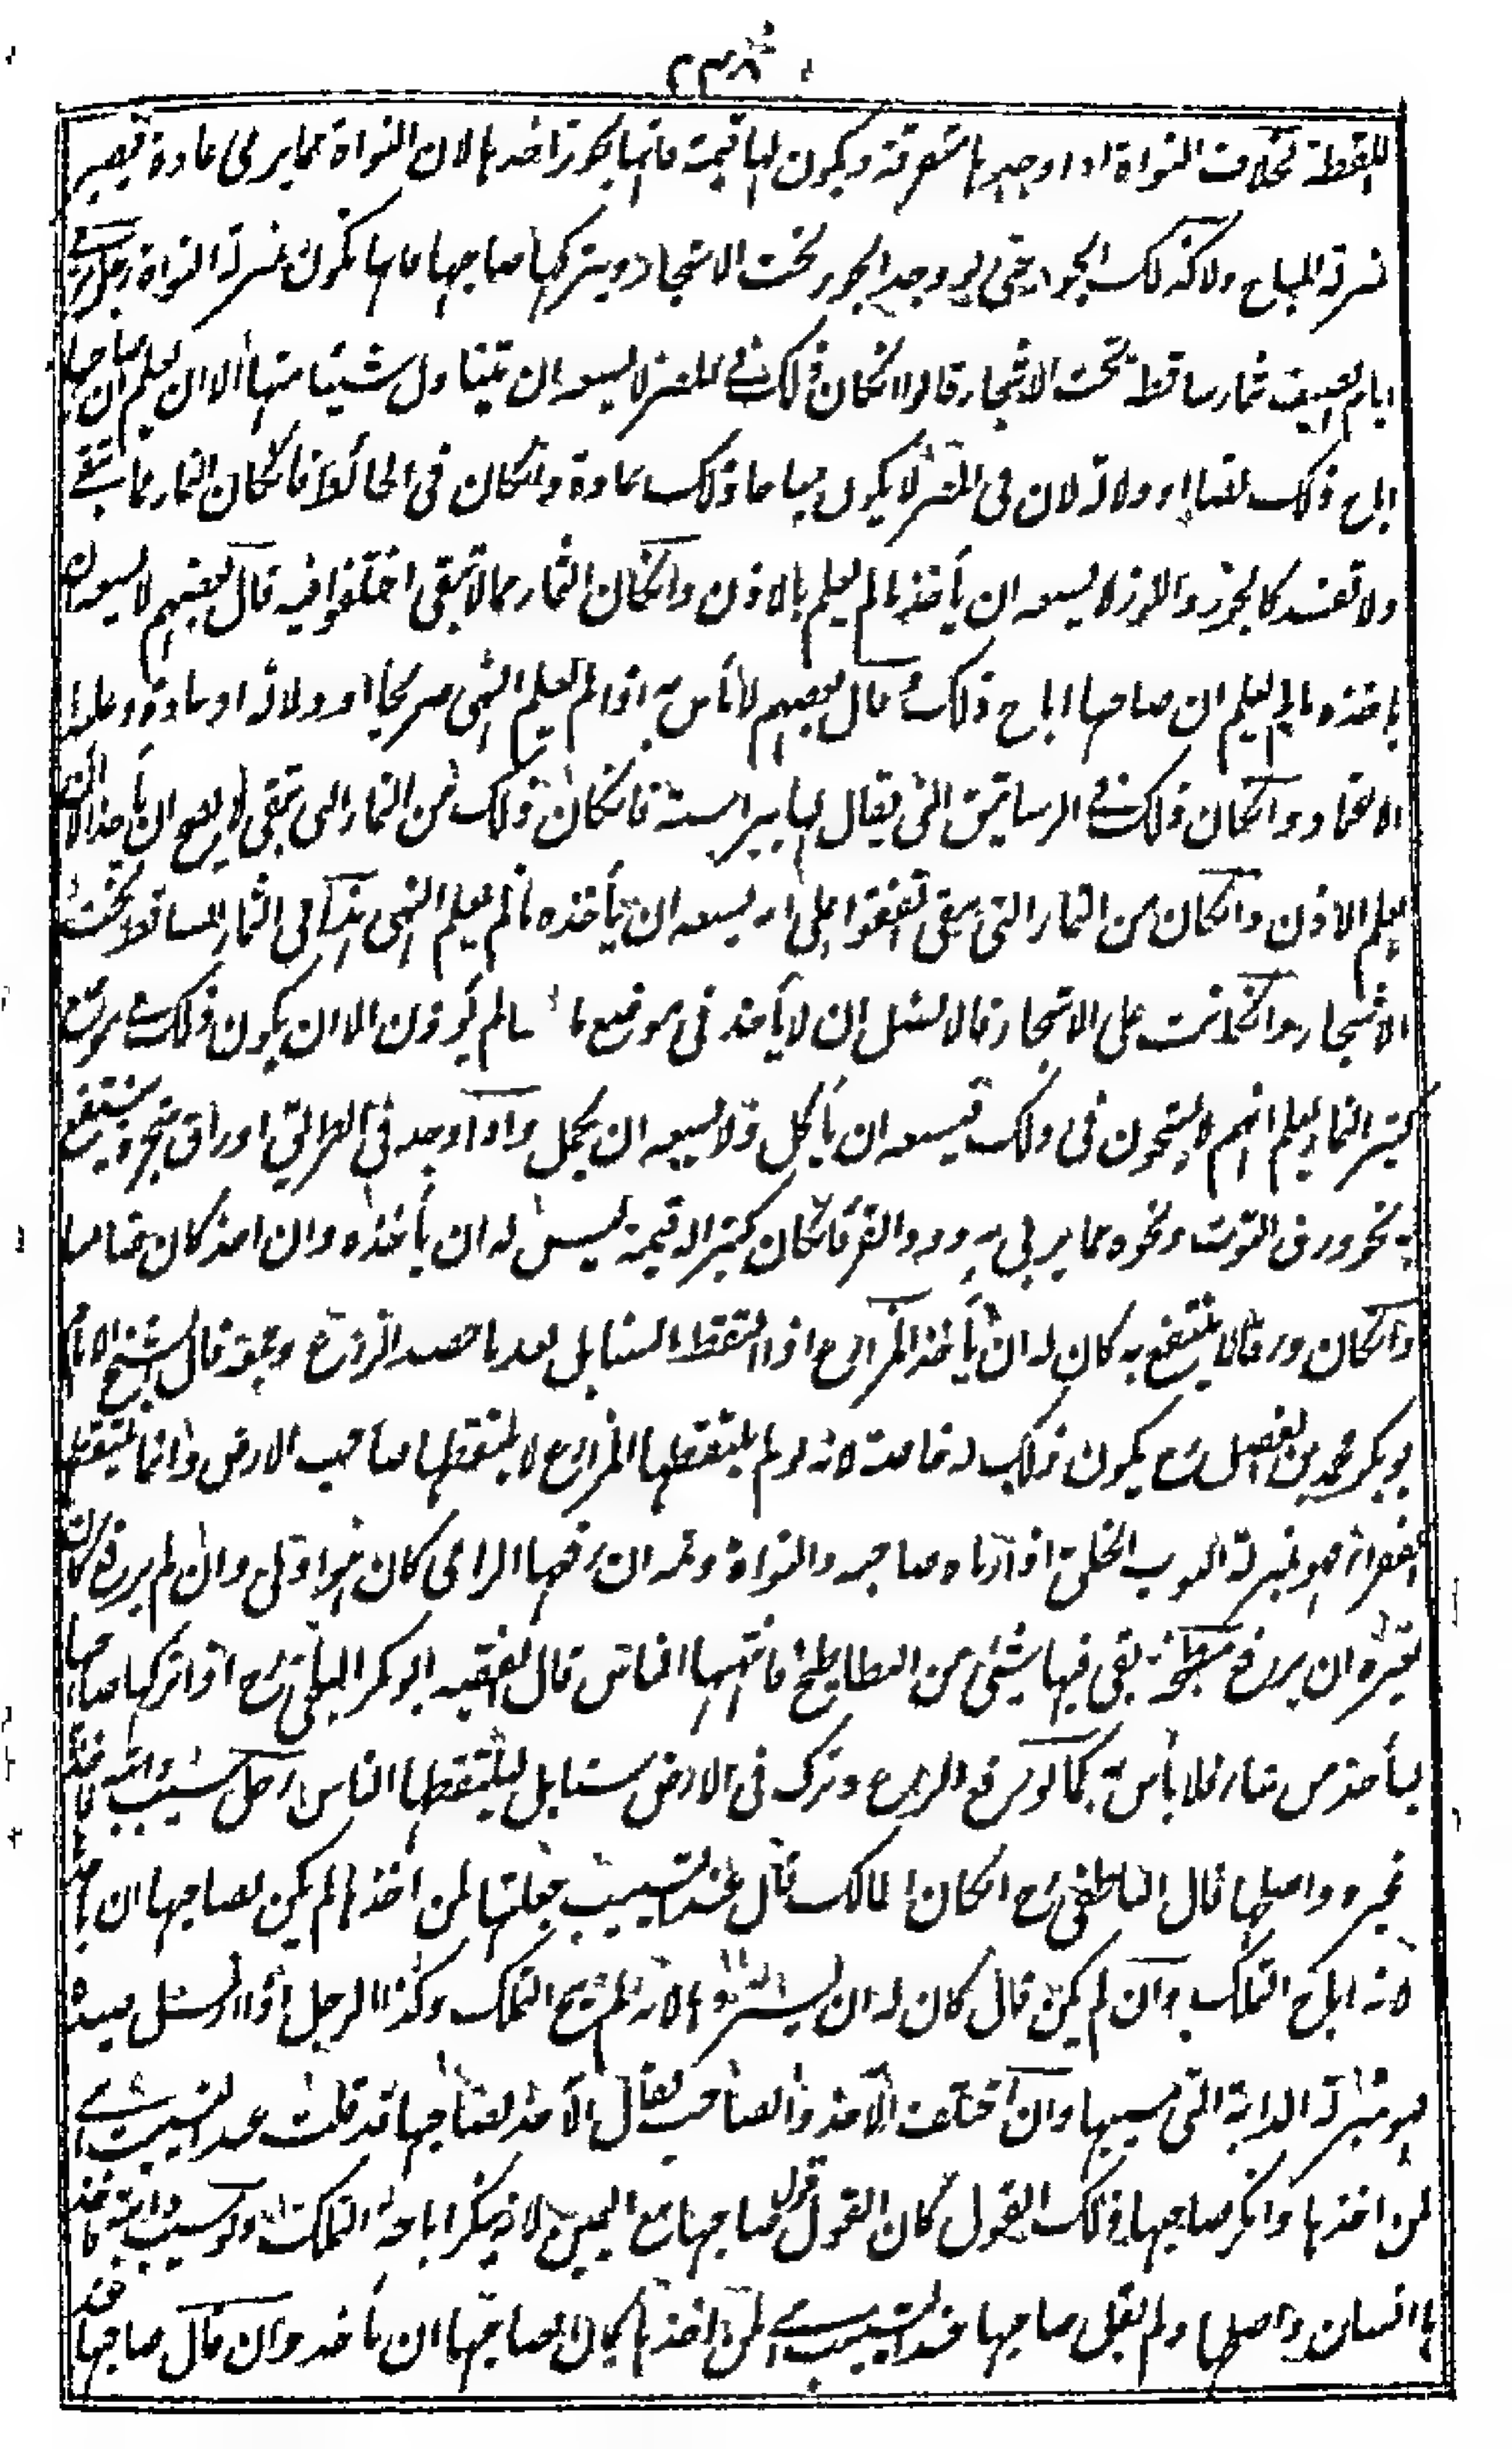 ٢٣٨
اللقطة بخلاف النواة اذا وجدها متفرقة ويكون لها قيمة فانها يجوز اخذها لان النواة مما يرمى عادة فيصير
بمنزلة المباح ولا كذلك الجوز حتى لو وجد الجوز تحت الاشجار ويتركها صاحبها فانها تكون بمنزلة النواة رجل مر في
ايام الصيف بثمار ساقطة تحت الاشجار قالوا انكان ذلك في المصر لا يسعه ان يتناول شيئا منها الا ان يعلم ان صاحبها
اباح ذلك نصا او دلالة لان في المصر لا يكون مباحا ذلك عادة وانكان في الحائط فانكان الثمار مما يبقى
ولا تفسد كالجوز واللوز لا يسعه ان يأخذ ما لم يعلم بالاذن وانكان الثمار مما لا تبقى اختلفوا فيه قال بعضهم لا يسعه ان
يأخذه ما لم يعلم ان صاحبها اباح ذلك وقال بعضهم لا بأس به اذا لم يعلم النهى صريحا او دلالة او عادة وعليه
الاعتماد وانكان ذلك في الرساتيق التى يقال لها بيراسته فانكان ذلك من الثمار التى تبقى لا يسع ان يأخذ الا ان
يعلم الاذن وانكان من الثمار التى يبقى اتفقوا على انه يسعه ان يأخذه ما لم يعلم النهى هذا فى الثمار الساقطة تحت
الاشجار وانكانت على الاشجار فالافضل ان لا يأخذ فى موضع ما لم يؤذن الا ان يكون ذلك في موضع
كثير الثمار يعلم انهم لا يشحون فى ذلك فيسعه ان يأكل ولا يسعه ان يحمل واذا وجد فى الطريق اوراق شجر وينتفع
به نحو ورق التوت ونحوه مما يربى به دود القز فانكان كثيرا له قيمة ليس له ان يأخذه وان اخذ كان ضامنا
وانكان ورقا لا ينتفع به كان له ان يأخذ المزارع اذا التقط السنابل بعد ما حصد الزرع وجمع قال الشيخ الامام
ابو بكر محمد بن الفضل رح يكون ذلك له خاصة لانه لو لم يلتقطها المزارع لا يلتقطها صاحب الارض وانما يلتقطها
الفقراء فهو بمنزلة الثوب الخلق اذا رماه صاحبه والنواة وثمه ان رفعها الراعى كان هو اولى وان لم يرفع كان
لغيره ان يرفع مبطخة بقى فيها شيئ من البطاطيخ فانتهبها الناس قال الفقيه ابو بكر البلخى رح اذا تركها صاحبها
ليأخذ من شاء فلا بأس به كما لو رفع الزرع وترك فى الارض سنابل ليلتقطها الناس رجل سيب دابته فاخذها
غيره واصلحها قال الناطفى رح انكان المالك قال عند التسييب جعلتها لمن اخذها لم يكن لصاحبها ان يأخذها
لانه اباح التملك وان لم يكن قال كان له ان يستردها لانه لم يبح التملك وكذا الرجل اذا ارسل صيده
فهو بمنزلة الدابة التى سيبها وان اختلف الآخذ والصاحب فقال الآخذ لصاحبها قد قلت عند التسييب هى
لمن اخذها وانكر صاحبها ذلك القول كان القول قول صاحبها مع اليمين لانه ينكر اباحة التملك ولو سيب دابته فاخذ
ها انسان واصلحها ولم يقل صاحبها عند التسييب هى لمن اخذها كان لصاحبها ان يأخذ وان قال صاحبها عند